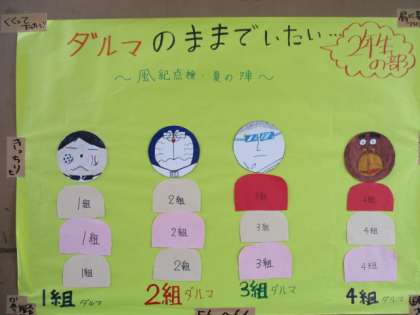 ダルマのままでいたい…
2年生の部
～風紀点検・夏の陣～
きっちりと
1組 2組 3組 4組
1組 2組 3組 4組
1組 2組 3組 4組
1組ダルマ 2組ダルマ 3組ダルマ 4組ダルマ